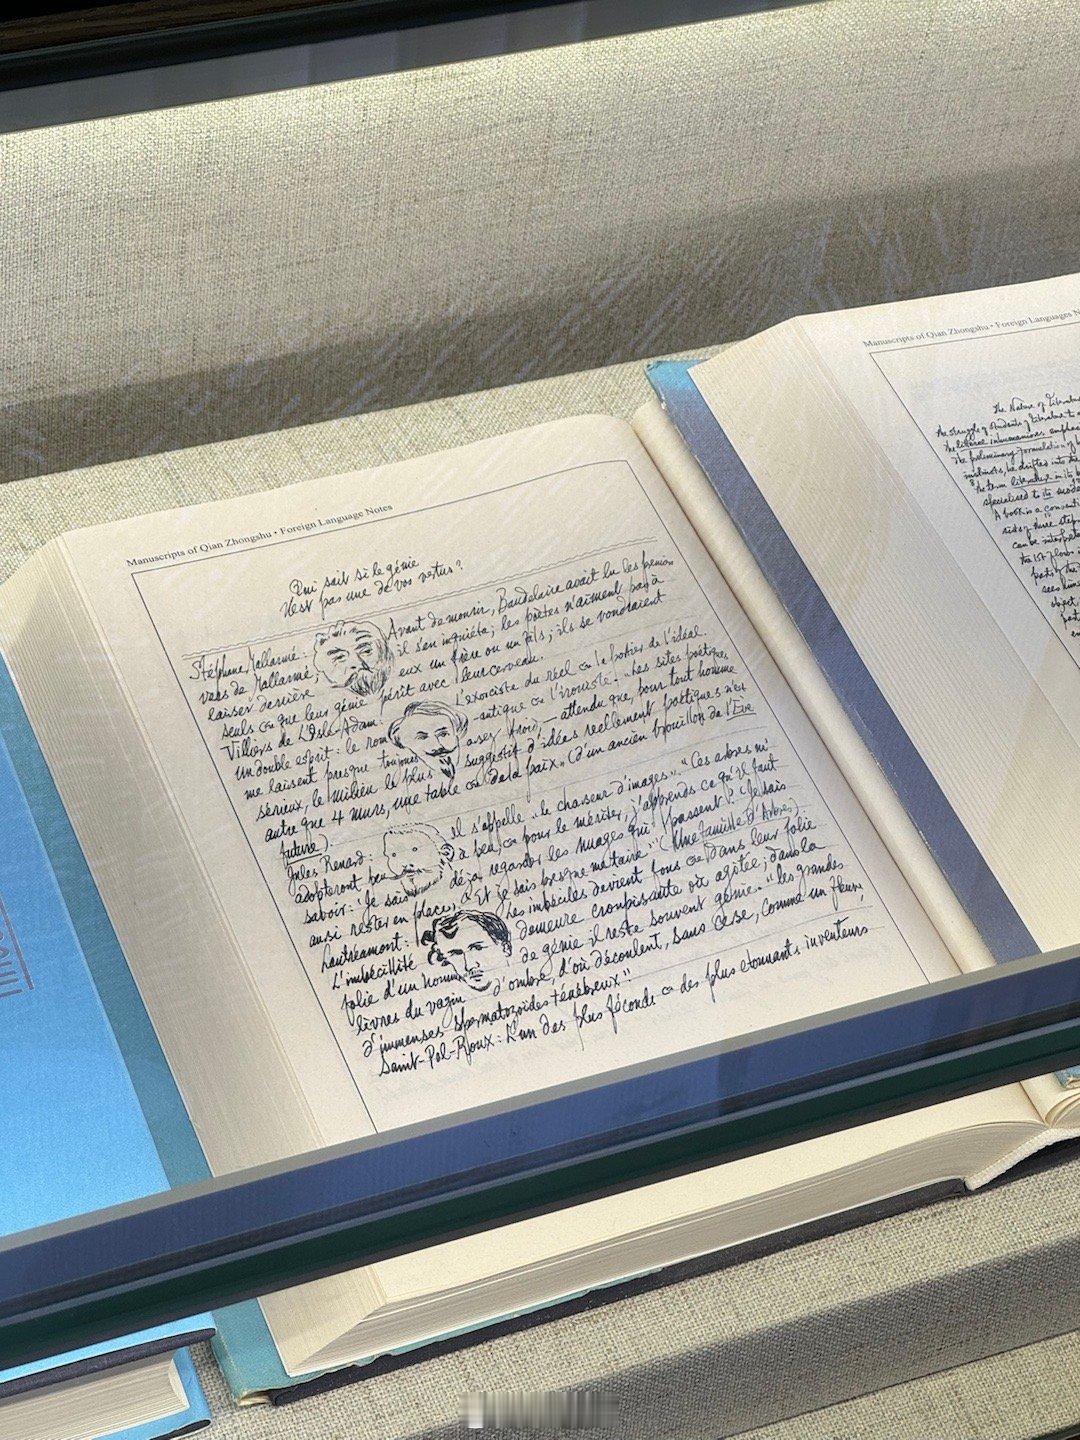 Manuscripts of Qian Zhongshu • Foreign Language Notes
Qui sait si le génie
n'est pas une de vos vertus?
Stéphane Mallarmé: Avant de mourir, Baudelaire avait lu les premiers
vers de Mallarmé; il s'en inquiéta; les poètes n'aiment pas à
laisser derrière eux un frère ou un fils; ils se voudraient
seuls et que leur génie périt avec leur cerveau.
Villiers de L'Isle-Adam: L'exorciste du réel et le portier de l'idéal.
Un double esprit: le romantique et l'ironiste. "Les sites poétiques
me laissent presque toujours assez froid, — attendu que, pour tout homme
sérieux, le milieu le plus suggestif d'idées réellement poétiques n'est
autre que 4 murs, une table et de la paix" (d'un ancien brouillon de l'Ève
future).
Jules Renard: il s'appelle "le chasseur d'images". "Ces arbres m'
adopteront peu à peu, et pour le mériter, j'apprends ce qu'il faut
savoir: Je sais déjà regarder les nuages qui passent. Je sais
aussi rester en place, Et je sais presque me taire" (Une famille d'Arbres).
Lautréamont: Les imbéciles devient fous et dans leur folie
L'imbécillité demeure croupissante ou agitée; dans la
folie d'un homme de génie il reste souvent génie. "les grandes
lèvres du vagin d'ombre, d'où découlent, sans cesse, comme un fleuve,
d'immenses spermatozoïdes ténébreux"
Saint-Pol-Roux: L'un des plus féconds et des plus étonnants inventeurs
Manuscripts of Qian Zhongshu • Foreign Languages
The Nature of Literature
The struggle of students of literature to
the liberal inhumanions
The preliminary formulation of
instincts, he drifted into the
The term literature in its
specialised to its mode
A book is a
sists of three steps
can be interpreted
the 1st
parts, the
sees him
object